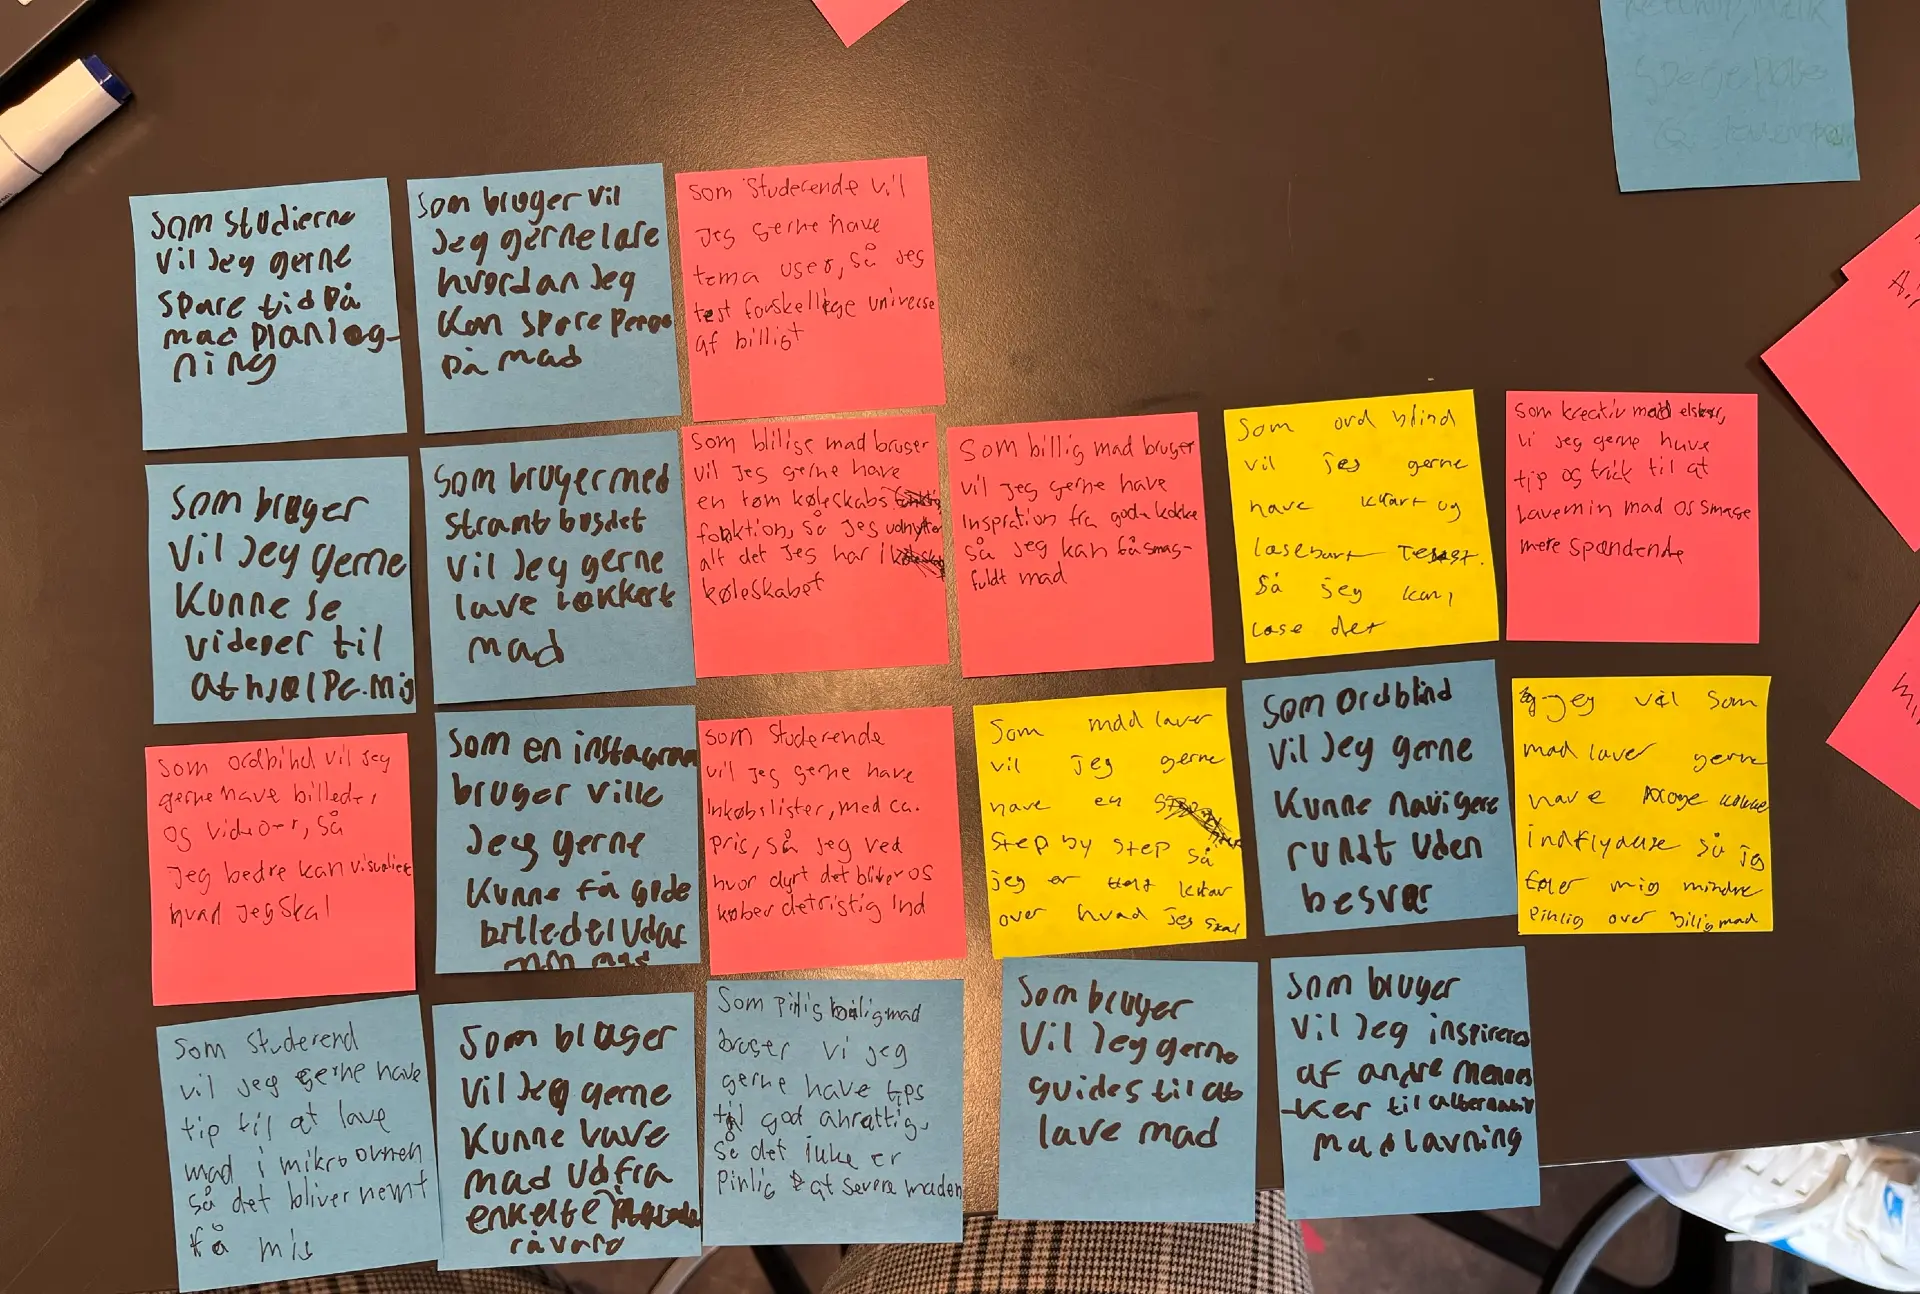 Som studierne
vil Jeg gerne
spare tid på
mad planlog-
ning
Som bruger vil
Jeg gerne lære
hvordan Jeg
kan spare penge
på mad
Som Studerende vil
Jeg gerne have
tema uger, så jeg
test forskellige universe
af billigt
Som bruger
Vil Jeg gerne
Kunne se
videoer til
at hjælpe mig
Som bruger med
stramt busdet
vil Jeg gerne
lave lækkert
mad
Som billige mad bruger
vil Jeg gerne have
en tøm køleskabs
funktion, så Jeg udnytter
alt det Jeg har i
køleskabet
Som billig mad bruger
vil Jeg gerne have
Inspration fra gode kokke
så jeg kan få smag-
fuldt mad
Som ord blind
vil jeg gerne
have klart og
læsebart
så jeg kan,
læse det
Som kreativ mad elsker,
vi jeg gerne have
tip og trick til at
lave min mad os smage
mere spændende
Som ordblind vil jeg
gerne have billeder
og videoer, så
Jeg bedre kan visualiere
hvad Jeg skal
Som en instagram
bruger ville
Jeg gerne
Kunne få gode
billeder udaf
min mad
Som Studerende
vil jeg gerne have
Inkøbslister, med ca.
pris, så jeg ved
hvor dyrt det bliver os
køber det rigtig ind
Som mad laver
vil jeg gerne
have en
step by step så
jeg er klar
over hvad jeg skal
Som Ordblind
Vil Jeg gerne
Kunne navigere
rundt uden
besvær
jeg vil som
mad laver gerne
have kokke
indflydelse så jeg
føler mig mindre
pinlig over billig mad
Som studerend
vil jeg gerne have
tip til at lave
mad i mikroovnen
så det bliver nemt
få mig
Som bruger
Vil Jeg gerne
Kunne lave
mad udfra
enkelte
råvare
Som pinlig billigmad
bruger vi jeg
gerne have tips
til god anrettig,
så det ikke er
Pinlig at severe maden
Som bruger
Vil Jeg gerne
guides til at
lave mad
Som bruger
Vil Jeg inspireres
af andre mennes
-ker til alternativ
madlavning